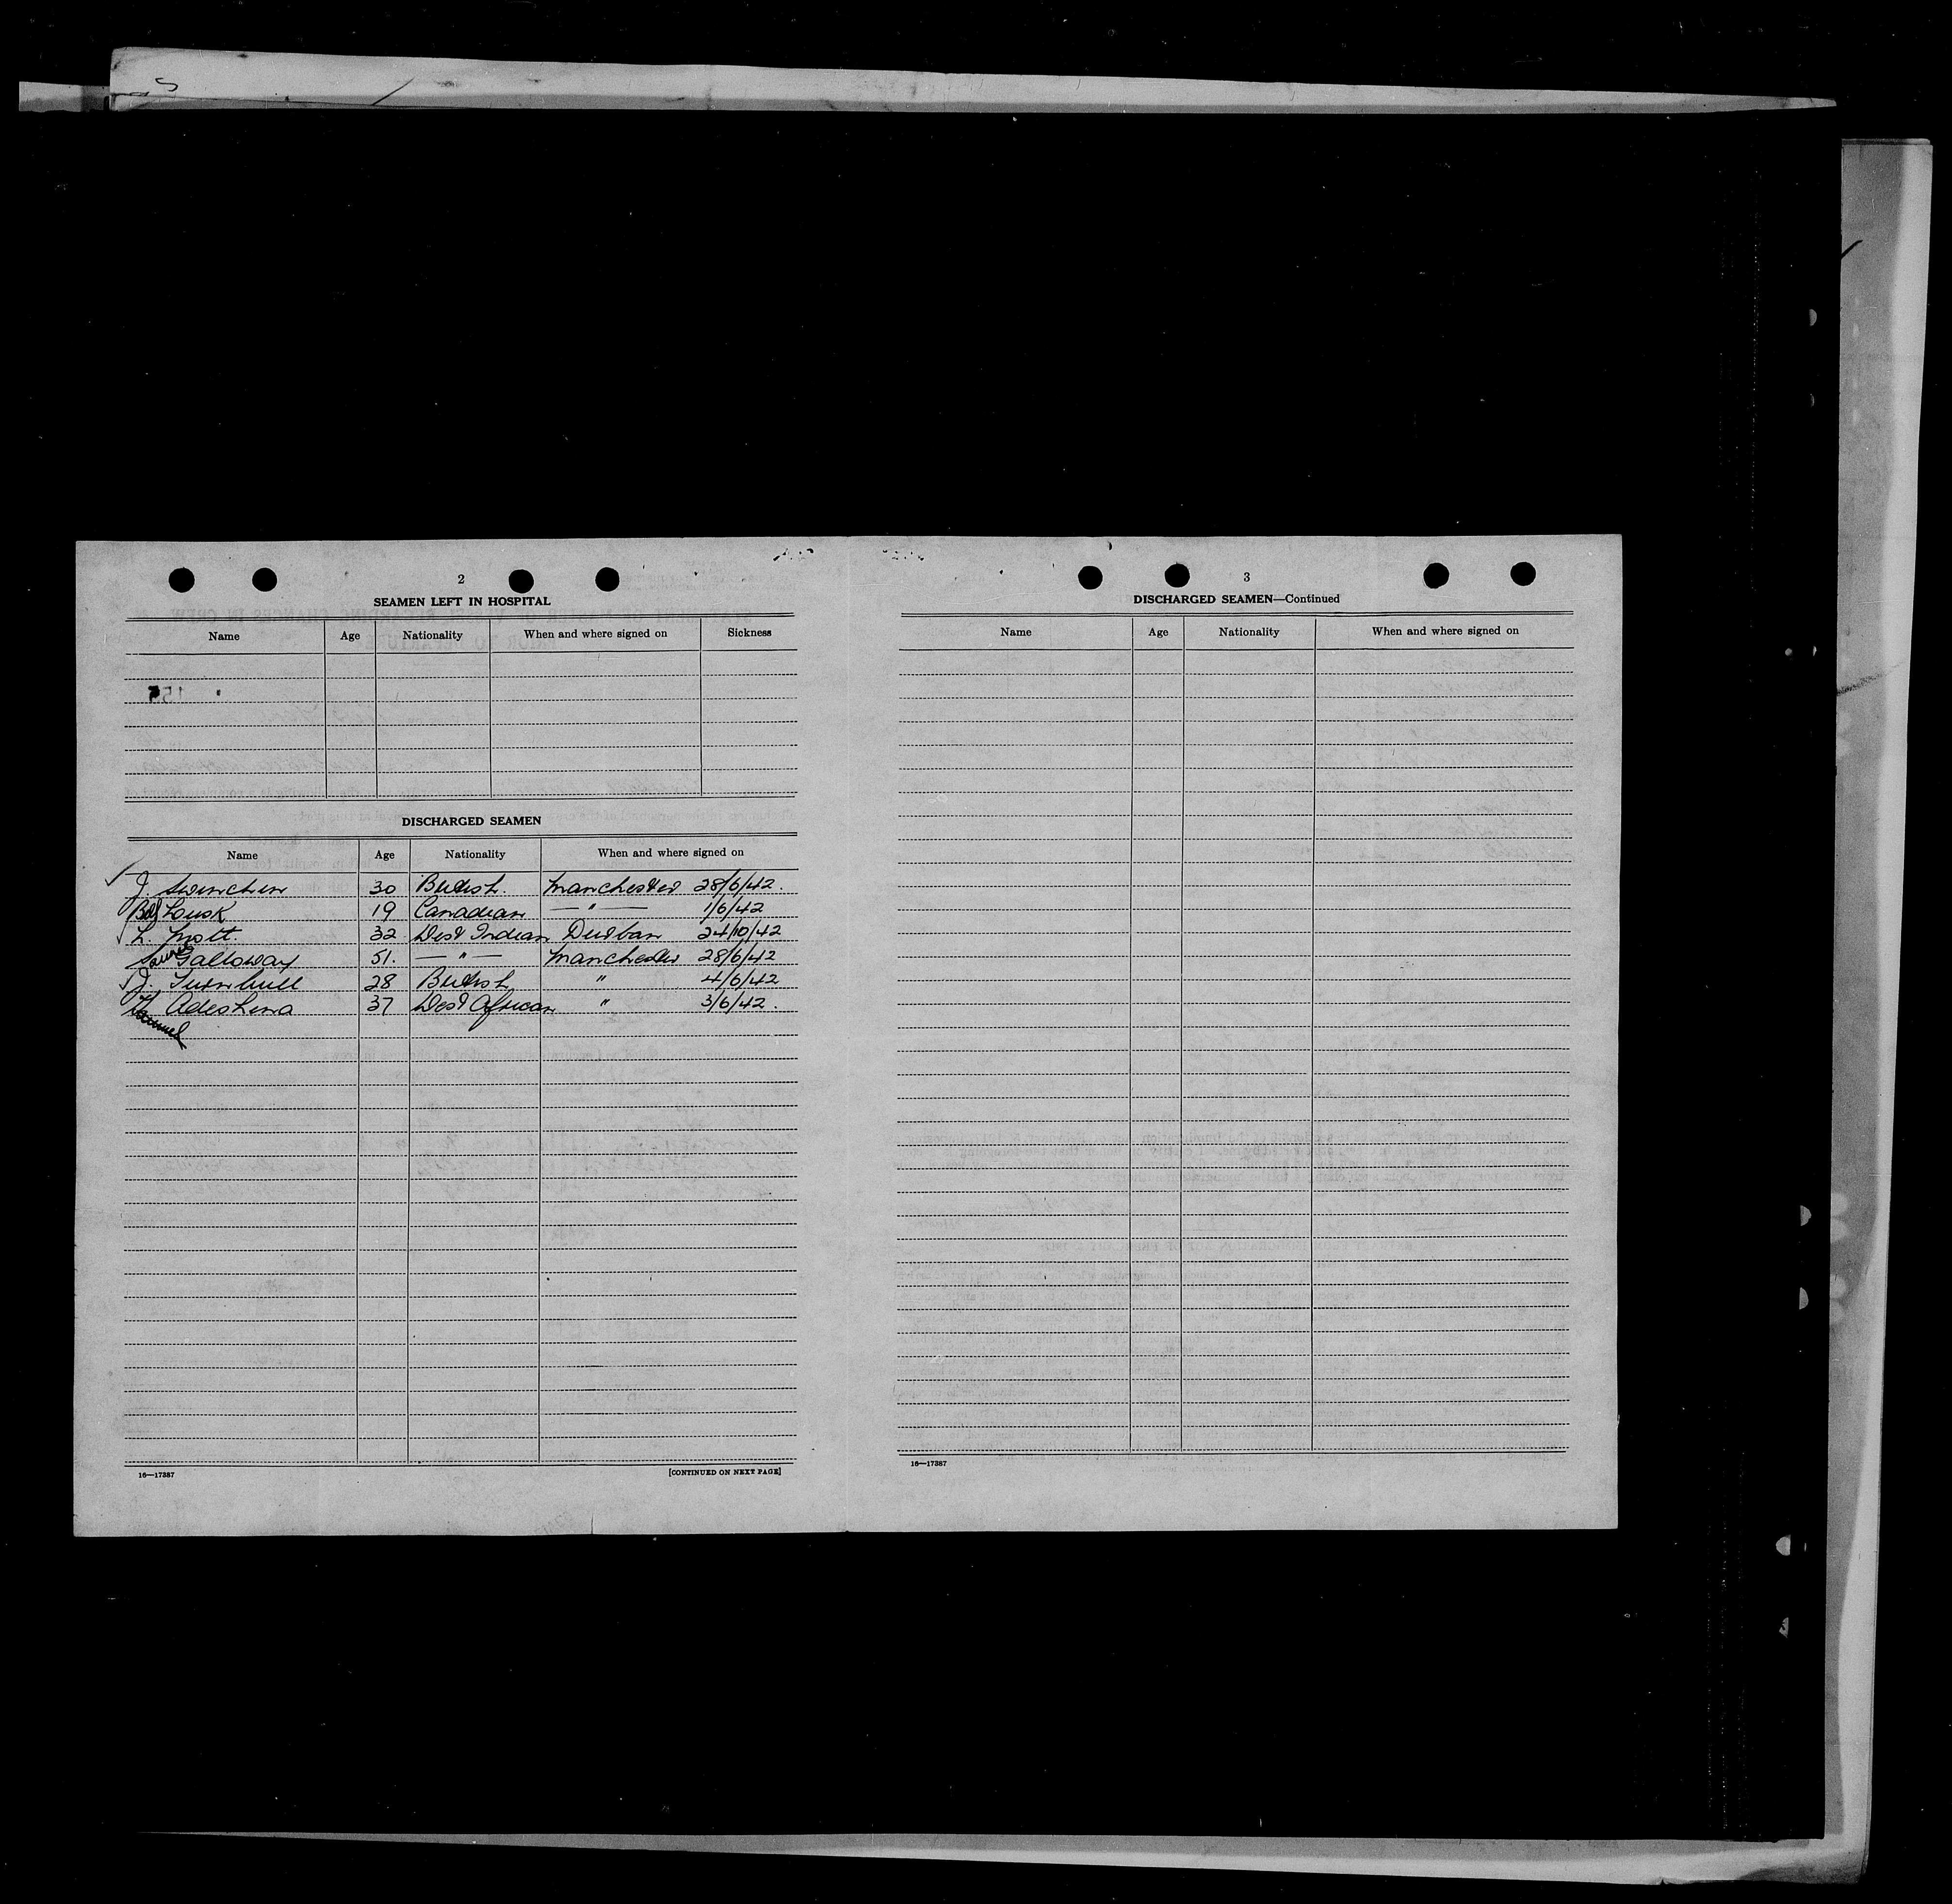 2
SEAMEN LEFT IN HOSPITAL
Name Age Nationality When and where signed on Sickness
DISCHARGED SEAMEN
Name Age Nationality When and where signed on
J. 30 British. Manchester 28/6/42.
Lousk 19 Canadian — " — 1/6/42
L. Mott. 32 West Indian Durban 24/10/42
Galloway 51. — " — Manchester 28/6/42
J. Turnbull 28 British " 4/6/42
Adeshina 37 West African " 3/6/42.
Samuel
16—17387 [CONTINUED ON NEXT PAGE]
3
DISCHARGED SEAMEN—Continued
Name Age Nationality When and where signed on
16—17387